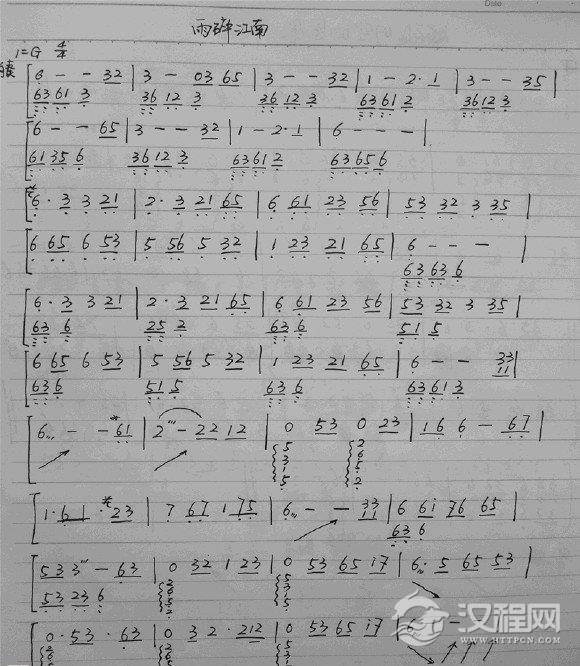 Date
雨碎江南
1=G 4/4
慢
[6 - - 32 | 3 - 03 65 | 3 - - 32 | 1 - 2·1 | 3 - - 35 |
6361 3 3612 3 3612 3 6361 2 3612 3
[6 - - 65 | 3 - - 32 | 1 - 2·1 | 6 - - - |
6135 6 3612 3 6361 2 6365 6
[6·3 3 21 | 2·3 21 65 | 6 61 23 56 | 53 32 3 35 |
[6 65 6 53 | 5 56 5 32 | 1 23 21 65 | 6 - - |
6363 6
[6·3 3 21 | 2·3 21 65 | 6 61 23 56 | 53 32 3 35 |
63 6 25 2 63 6 51 5
[6 65 6 53 | 5 56 5 32 | 1 23 21 65 | 6 - - 33/11 |
63 6 51 5 63 6 6361 3
[6 - - 61 | 2 - 22 12 | 0 53 0 23 | 16 6 - 67 |
5315 2652
[1·61·23 | 7 67 1 75 | 6 - - 33/11 | 6 61 76 65 |
63 6
[533 - 63 | 0 32 1 23 | 0 53 65 17 | 6·5 65 53 |
5323 6
[0·53·63 | 0 32·212 | 0 53 65 17 | 6 -
汉程网
HTTPCN.COM